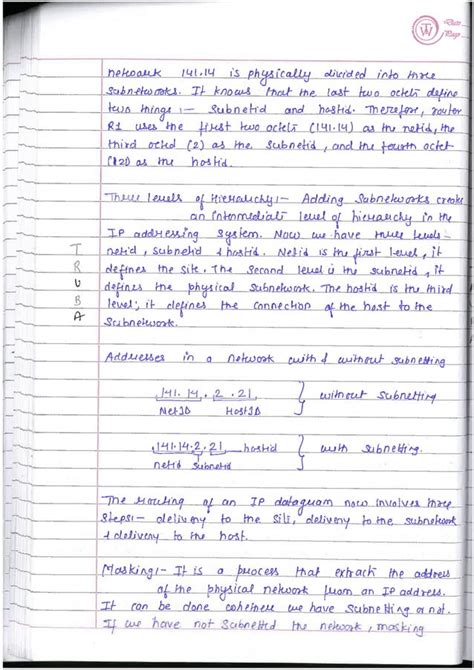 Date
Page
network 141.14 is physically divided into three
subnetworks. It knows that the last two octets define
two things :- Subnetid and hostid. Therefore, router
R1 uses the first two octets (141.14) as the netid, the
third octed (2) as the subnetid, and the fourth octet
as the hostid.
Three levels of Hierarchy :- Adding Subnetworks creates
an intermediate level of hierarchy in the
IP addressing system. Now we have three levels
netid, subnetid & hostid. Netid is the first level, it
defines the site. The second level is the subnetid, it
defines the physical subnetwork. The hostid is the third
level; it defines the connection of the host to the
Subnetwork.
T
R
U
B
A
Addresses in a network with & without subnetting
141.14 . 2 . 21 } without Subnetting
NetID HostID
141.14.2.21 hostid } with subnetting.
netid subnetid
The routing of an IP datagram now involves three
steps :- delivery to the site, delivery to the subnetwork
& delivery to the host.
Masking :- It is a process that extract the address
of the physical network from an IP address.
It can be done we have subnetting or not.
If we have not subnetted the network, masking